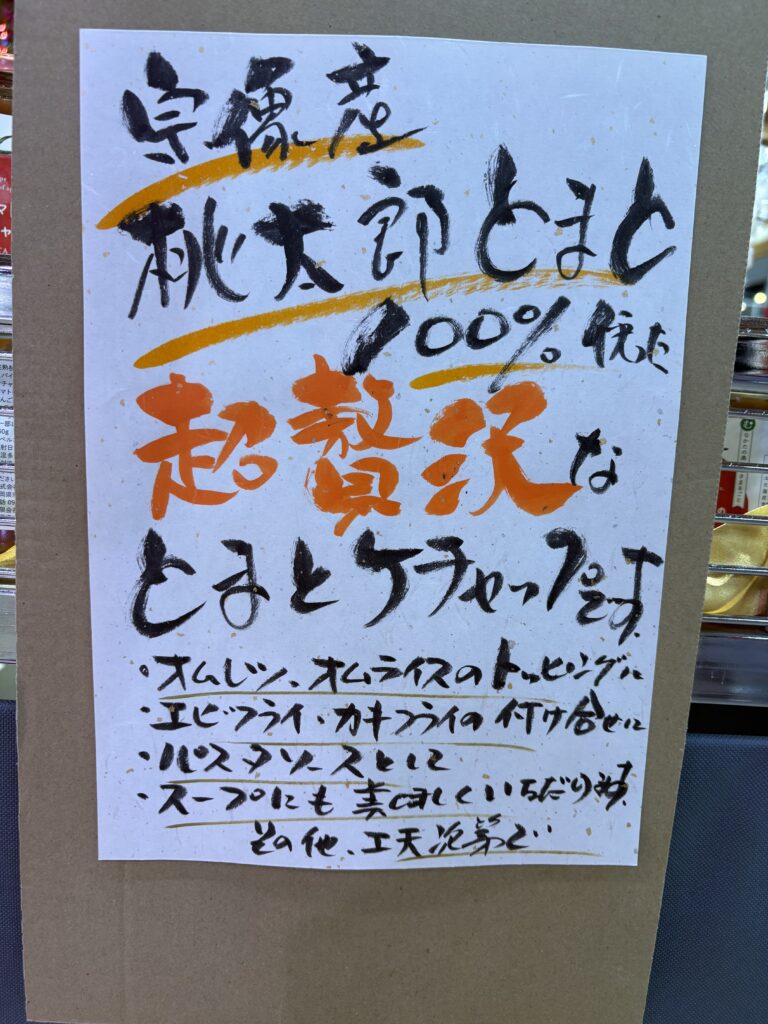 宗像産
桃太郎とまと
100%使った
超贅沢な
とまとケチャップです。
・オムレツ、オムライスのトッピングに
・エビフライ・カキフライの付け合せに
・パスタソースとして
・スープにも美味しくいただけます。
その他、工夫次第で